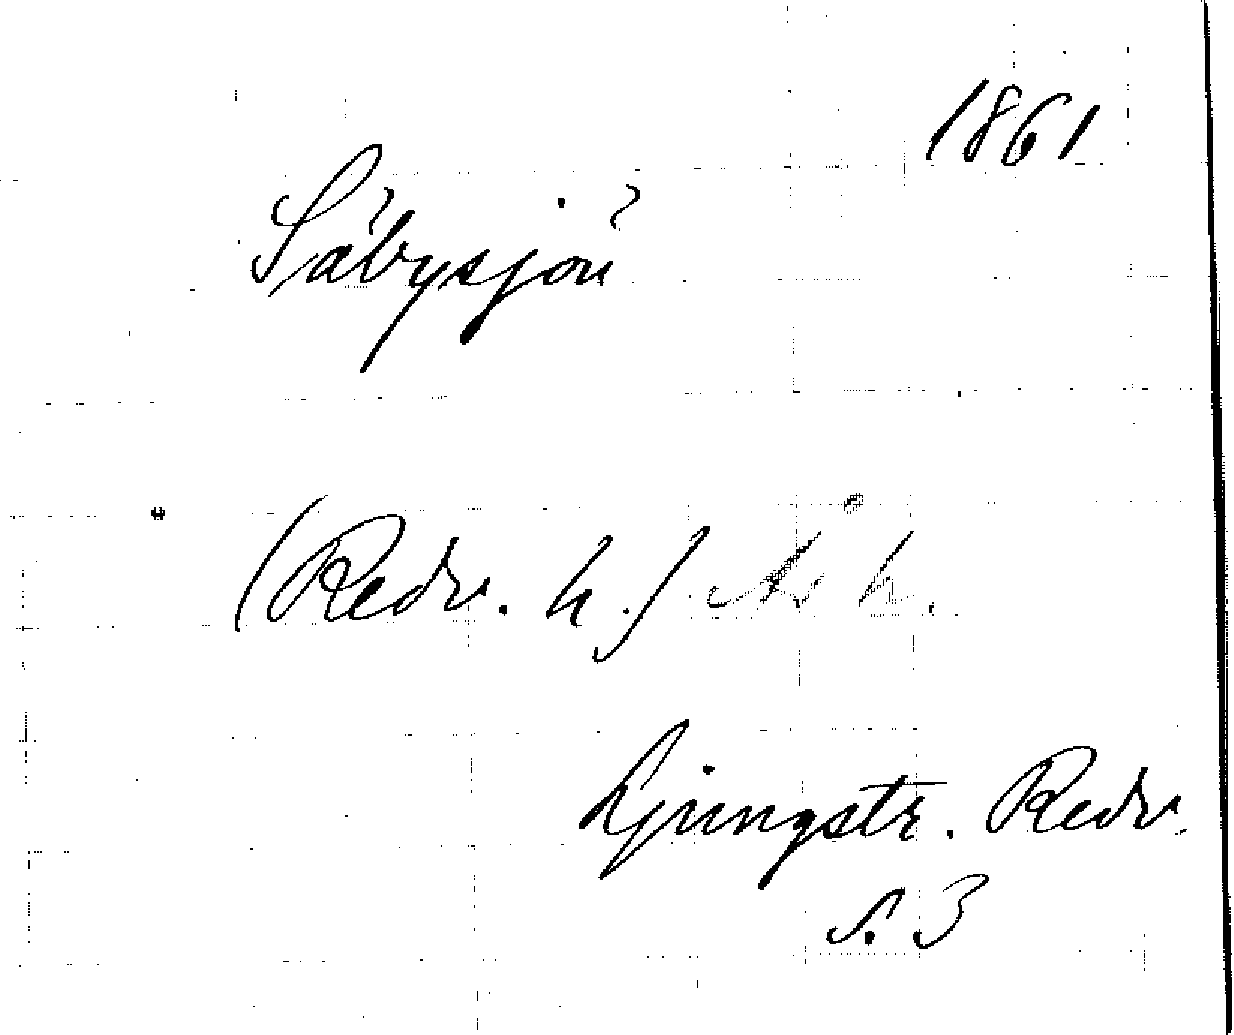 1861
Säbysjön
(Redv. h.) Ås h.
Ljungstr. Redv.
s. 3